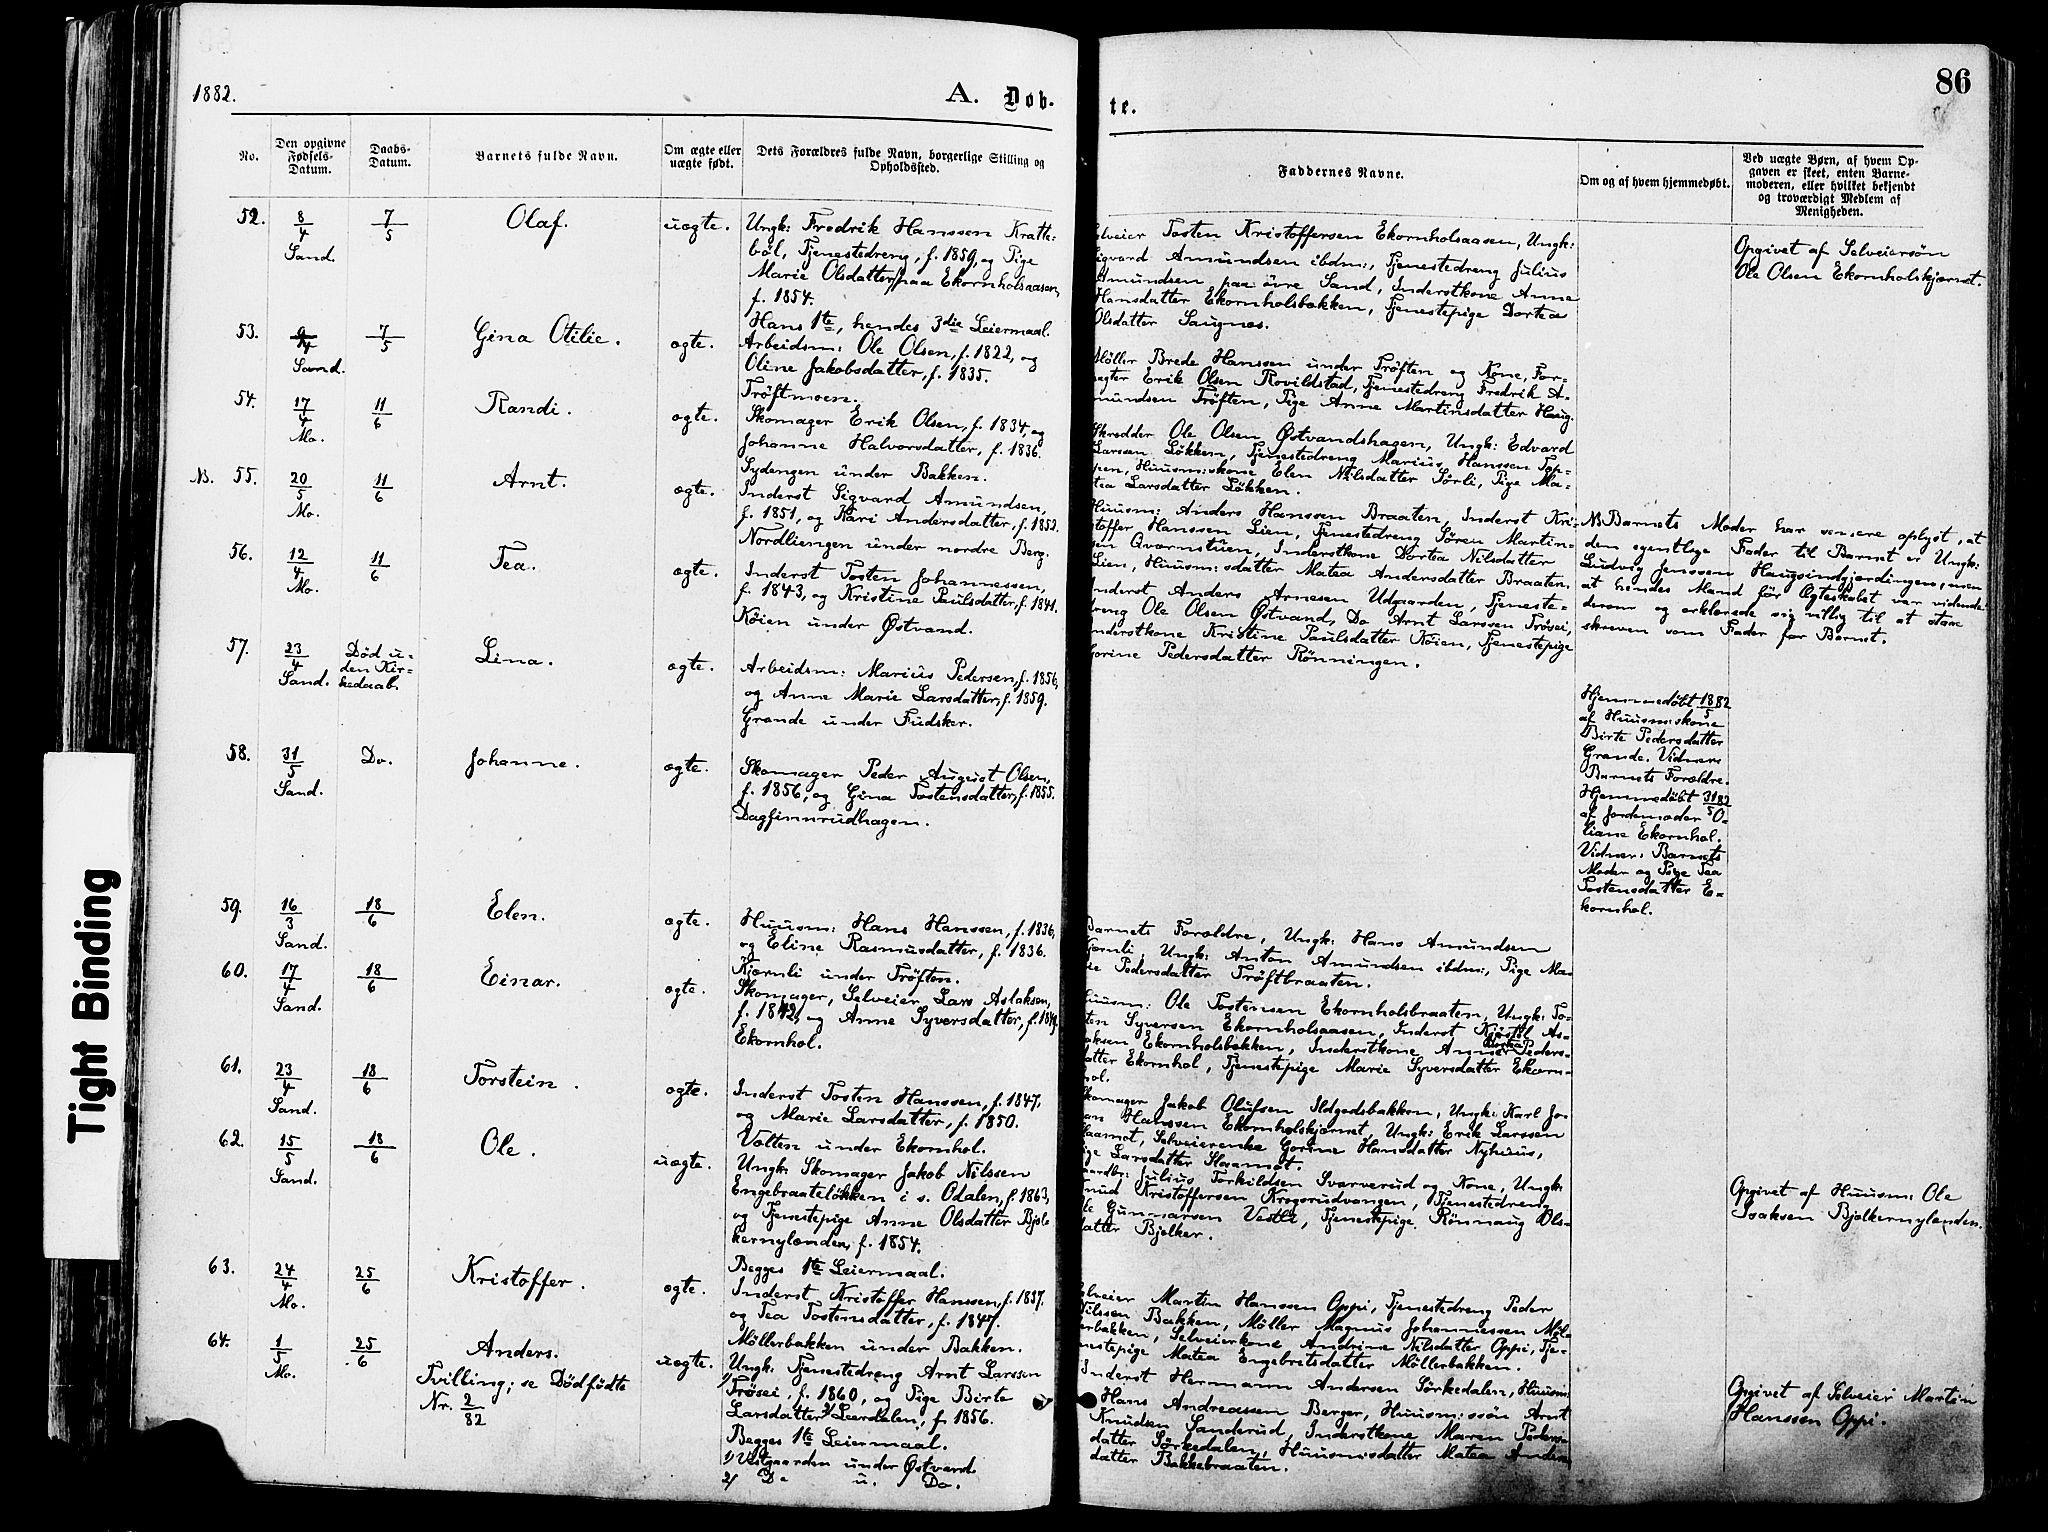 1882.
A. Døb-
te.
86
No.
Den opgivne
Fødsels-
Datum.
Daabs-
Datum.
Barnets fulde Navn.
Om ægte eller
uægte født.
Dets Forældres fulde Navn, borgerlige Stilling og
Opholdssted.
Faddernes Navne.
Om og af hvem hjemmedøbt.
Ved uægte Børn, af hvem Op-
gaven er skeet, enten Barne-
moderen, eller hvilket bekjendt
og troværdigt Medlem af
Menigheden.
52.
8/4
Sand.
7/5
Olaf.
uægte.
Ungk: Fredrik Hanssen Kratte-
ból, Tjenestedreng, f. 1859, og Pige
Marie Olsdatter, paa Ekornholsaasen,
f. 1854.
Hans 1te, hendes 3die Leiermaal.
elveier Tosten Kristoffersen Ekornholsaasen, Ungk:
igvard Amundsen ibdm:, Tjenestedreng Julius
Amundsen paa övre Sand, Inderstkone Anne
Hansdatter Ekornholsbækken, Tjenestepige Dortea
Olsdatter Saugnæs.
Opgivet af Selveiersøn
Ole Olsen Ekornholskjærnet.
53.
9/4
Sand.
7/5
Gina Otilie.
ægte.
Arbeidsm: Ole Olsen, f. 1822, og
Oline Jakobsdatter, f. 1835.
Tröftmoen.
Möller Brede Hanssen under Tröften og Kone, For-
pagter Erik Olsen Rovildstad, Tjenestedreng Fredrik A-
mundsen Tröften, Pige Anne Martinsdatter Haug.
54.
17/4
Mo.
11/6
Randi.
ægte.
Skomager Erik Olsen, f. 1834, og
Johanne Halvorsdatter, f. 1836.
Sydengen under Bakken.
Skrædder Ole Olsen Østvandshagen, Ungk: Edvard
Larssen Løkken, Tjenestedreng Marius Hanssen Top-
pen, Huusm:skone Elen Nilsdatter Sörli, Pige Ma-
tea Larsdatter Løkken.
NB. 55.
20/5
Mo.
11/6
Arnt.
ægte.
Inderst Sigvard Amundsen,
f. 1851, og Kari Andersdatter, f. 1852.
Nordliengen under nordre Berg.
Huusm: Anders Hanssen Braaten, Inderst Kri-
stoffer Hanssen Lien, Tjenestedreng Søren Martin-
sen Qværnstuen, Inderstkone Dortea Nilsdatter
Lien, Huusm:sdatter Matea Andersdatter Braaten.
NB Barnets Moder har senere oplyst, at
den egentlige Fader til Barnet er Ungk:
Ludvig Jenssen Haugsindgjærdingen, men
at hendes Mand før Ægteskabet var vidende
derom og erklærede sig villig til at staa
skreven som Fader for Barnet.
56.
12/4
Mo.
11/6
Tea.
ægte.
Inderst Tosten Johannessen,
f. 1843, og Kristine Paulsdatter, f. 1841.
Köien under Østvand.
Inderst Anders Arnesen Udgaarden, Tjeneste-
dreng Ole Olsen Østvand, Do Arnt Larssen Trösei,
Inderstkone Kristine Paulsdatter Köien, Tjenestepige
Gorine Pedersdatter Rönningen.
57.
23/4
Sand.
Død u-
den Kir-
kedaab.
Lina.
ægte.
Arbeidsm: Marius Pedersen, f. 1856,
og Anne Marie Larsdatter, f. 1859.
Grande under Fudsker.
Hjemmedøbt 18/5 82
af Huusm:skone
Birte Pedersdatter
Grande. Vidner:
Barnets Forældre.
58.
31/5
Sand.
Do.
Johanne.
ægte.
Skomager Peder August Olsen,
f. 1856, og Gina Tostensdatter, f. 1855.
Dagfinnrudhagen.
Hjemmedøbt 31/5 82
af Jordemoder O-
liane Ekornhol.
Vidner: Barnets
Moder og Pige Tea
Tostensdatter E-
kornhol.
59.
16/3
Sand.
18/6
Elen.
ægte.
Huusm: Hans Hanssen, f. 1836,
og Eline Rasmusdatter, f. 1836.
Kjærnli under Tröften.
Barnets Forældre, Ungk: Hans Amundsen
Kjærnli, Ungk: Anton Amundsen ibdm:, Pige Ma-
rie Pedersdatter Tröftbraaten.
60.
17/4
Sand.
18/6
Einar.
ægte.
Skomager, Selveier Lars Aslaksen,
f. 1842, og Anne Syversdatter, f. 1849.
Ekornhol.
Huusm: Ole Tostensen Ekornholsbraaten, Ungk: To-
sten Syversen Ekornholsaasen, Inderst Kjöstel As-
laksen Ekornholsbækken, Inderstkone Anne Peders-
datter Ekornhol, Tjenestepige Marie Syversdatter Ekorn-
hol.
61.
23/4
Sand.
18/6
Torstein.
ægte.
Inderst Tosten Hanssen, f. 1847,
og Marie Larsdatter, f. 1850.
Volten under Ekornhol.
Skomager Jakob Olufsen Ildgedsbakken, Ungk: Karl Jo-
an Hanssen Ekornholskjærnet, Ungk: Erik Larssen
Slaamot, Selveierenke Gorine Hansdatter Nyhuus,
Pige Larsdatter Slaamot.
62.
15/5
Sand.
18/6
Ole.
uægte.
Ungk: Skomager Jakob Nilssen
Engebraateløkken i s. Odalen, f. 1863,
og Tjenestepige Anne Olsdatter Bjöl-
kernylænden, f. 1854.
Begges 1te Leiermaal.
Gaardbr: Julius Torkildsen Svarverud og Kone, Ungk:
Knud Kristoffersen Krogsrudvangen, Tjenestedreng
Ole Gunnarsen Vestli, Tjenestepige Rönnaug Ols-
datter Bjølker.
Opgivet af Huusm: Ole
Isaksen Bjølkernylænden.
63.
24/4
Mo.
25/6
Kristoffer.
ægte.
Inderst Kristoffer Hanssen, f. 1837,
og Tea Tostensdatter, f. 1847.
Möllerbakken under Bakken.
Selveier Martin Hanssen Oppi, Tjenestedreng Peder
Nilssen Bakken, Möller Magnus Johannessen Möl-
lerbakken, Selveierkone Andrine Nilsdatter Oppi, Tje-
nestepige Matea Engebretsdatter Möllerbakken.
64.
1/5
Mo.
25/6
Anders.
Tvilling; se Dödfödte
Nr. 2/82
uægte.
Ungk: Tjenestedreng Arnt Larssen
1/ Trösei, f. 1860, og Pige Birte
Larsdatter 2/ Leerdalen, f. 1856.
Begges 1te Leiermaal.
1/ Vestgaarden under Østvand.
2/ Do u. Do.
Inderst Hermann Andersen Sörkedalen, Huusm:
Hans Andreassen Berger, Huusm:ssön Arnt
Knudsen Sanderud, Inderstkone Maren Peders-
datter Sörkedalen, Huusm:sdatter Matea Anders-
datter Bakkebraaten.
Opgivet af Selveier Martin
Hanssen Oppi.
Tight Binding